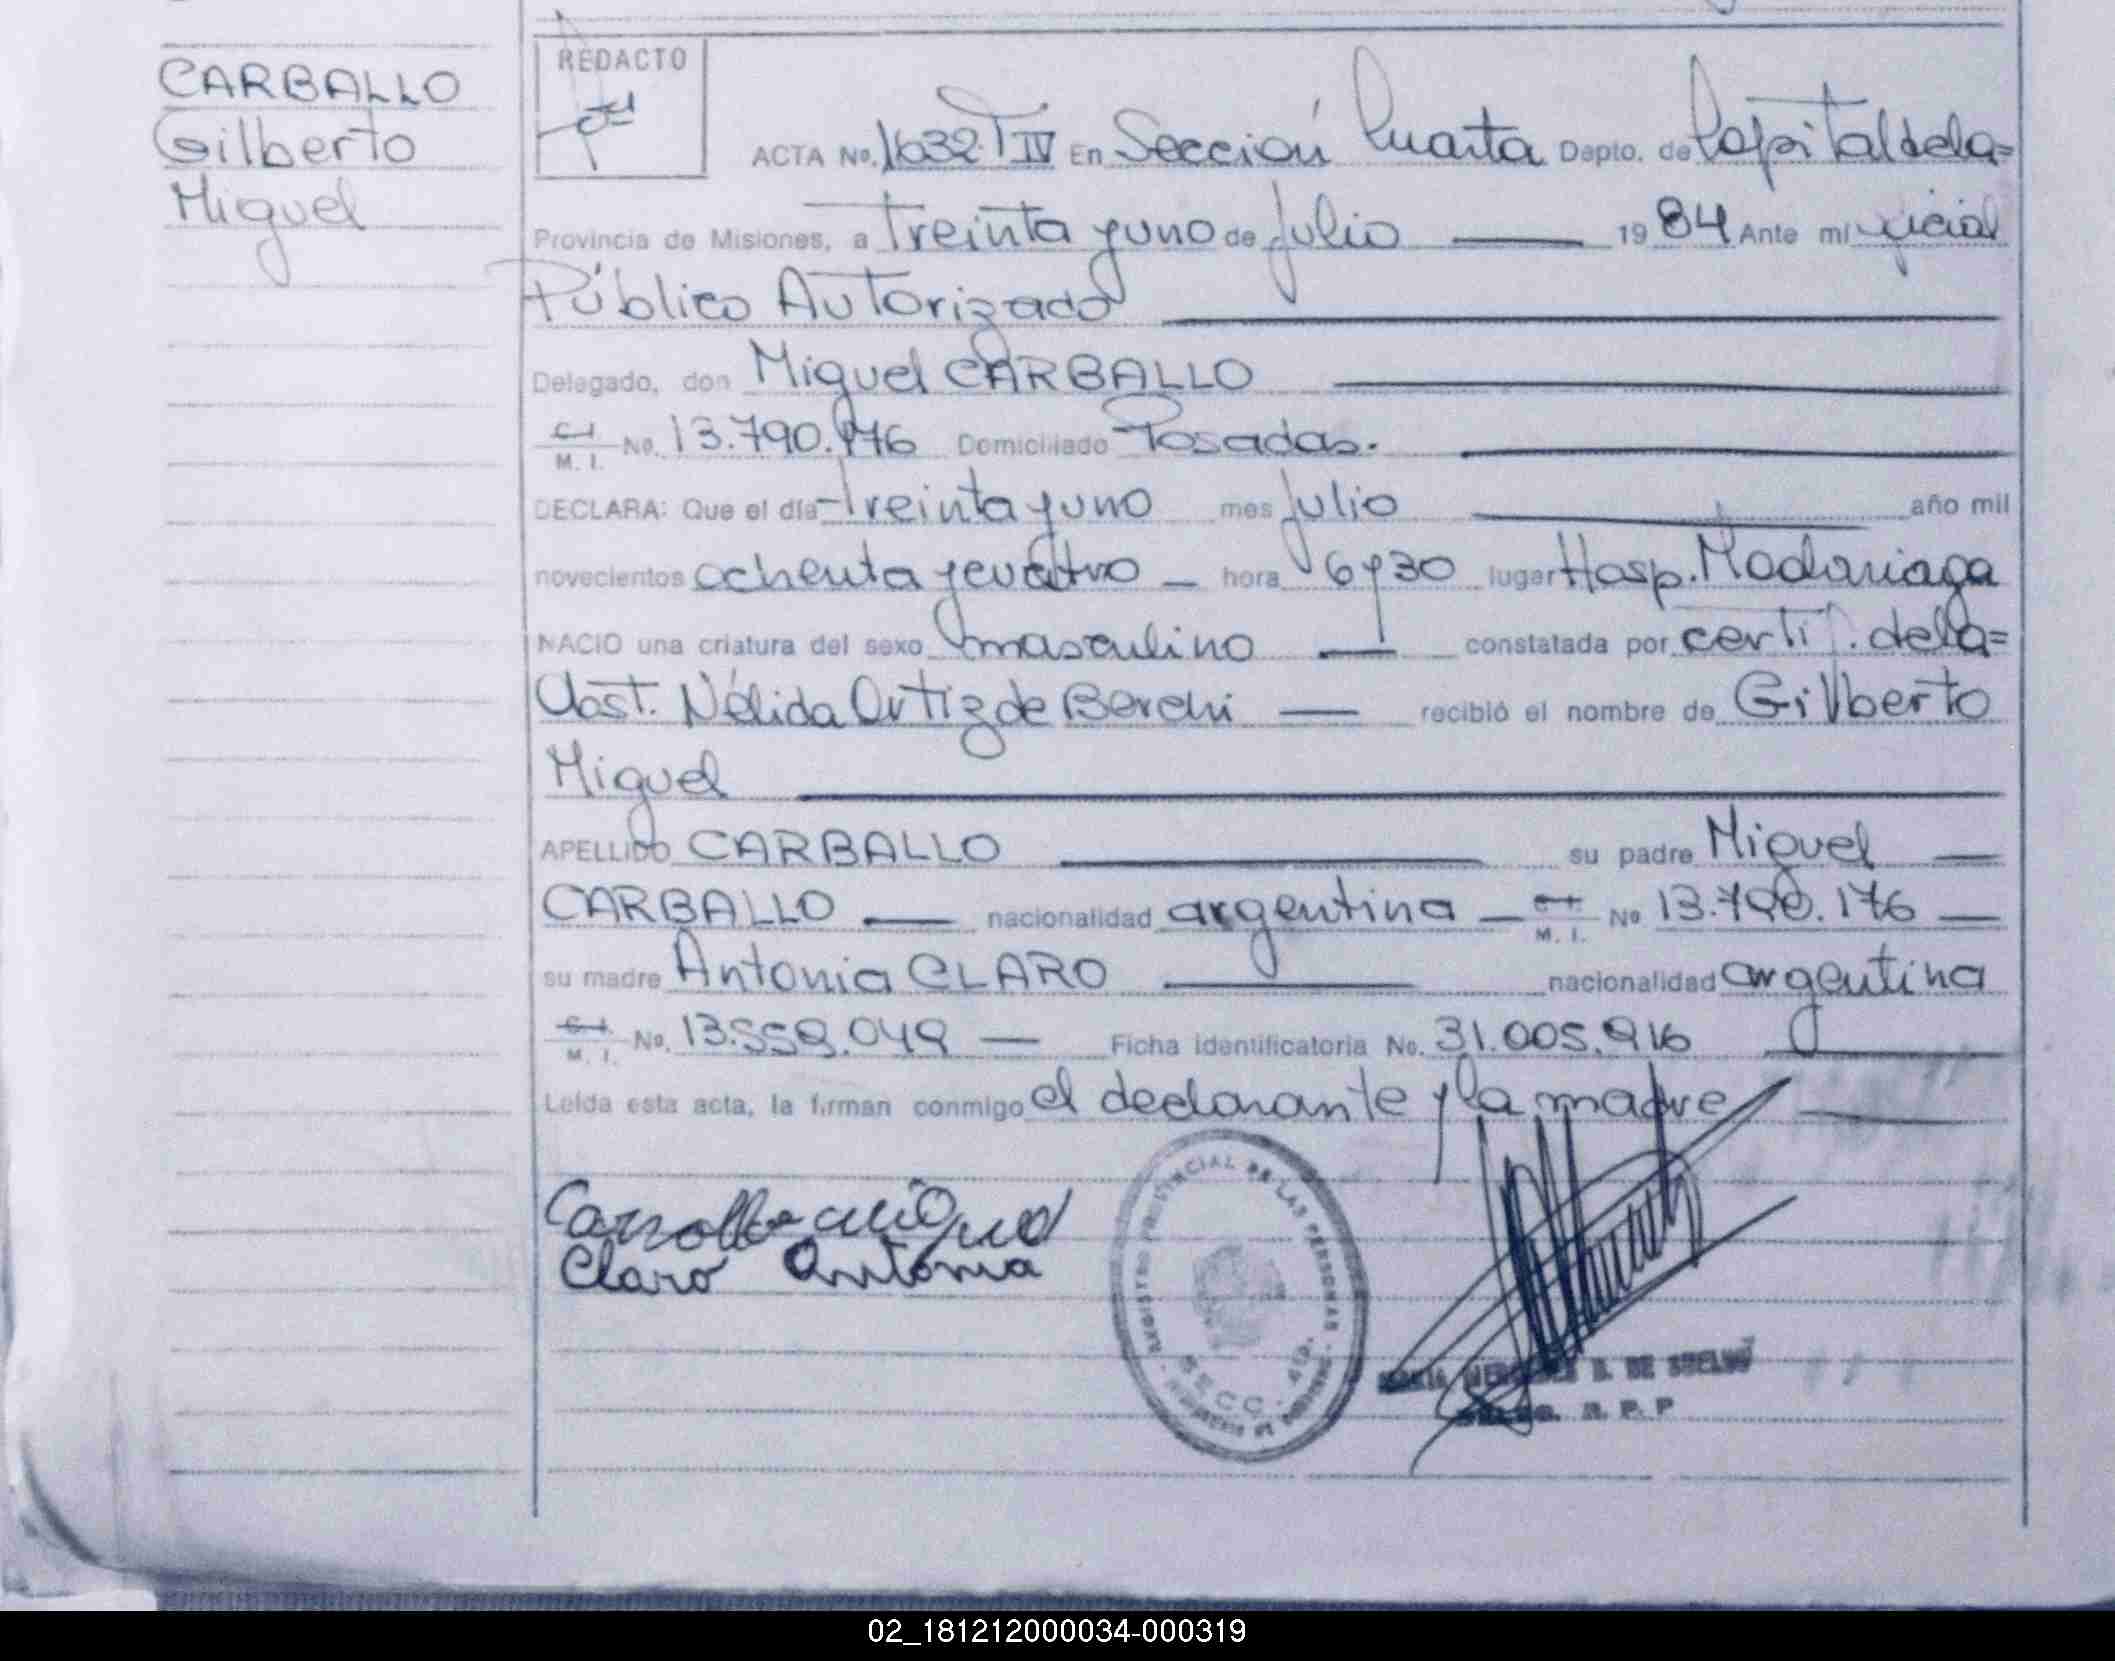 CARBALLO
Gilberto
Miguel
REDACTO
ACTA No. 1632 T IV En Sección Cuarta Depto. de Capital de la=
Provincia de Misiones, a Treinta y uno de Julio 19 84 Ante mi
Público Autorizado
Delegado, don Miguel CARBALLO
C.I. M. I. No. 13.790.176 Domiciliado Posadas.
DECLARA: Que el día Treinta y uno mes Julio año mil
novecientos ochenta y cuatro hora 6 y 30 lugar Hosp. Madariaga
NACIO una criatura del sexo masculino constatada por certif. de la=
Obst. Nélida Ortiz de Berchi recibió el nombre de Gilberto
Miguel
APELLIDO CARBALLO su padre Miguel
CARBALLO nacionalidad argentina C.I. M. I. No 13.790.176
su madre Antonia CLARO nacionalidad argentina
C.I. M. I. No. 13.559.049 Ficha identificatoria No. 31.005.916
Leída esta acta, la firman conmigo el declarante y la madre
Carballo Miguel
Claro Antonia
REGISTRO PROVINCIAL DE LAS PERSONAS
SECC. 4ta.
DE SUELDO
R. P. P
02_181212000034-000319